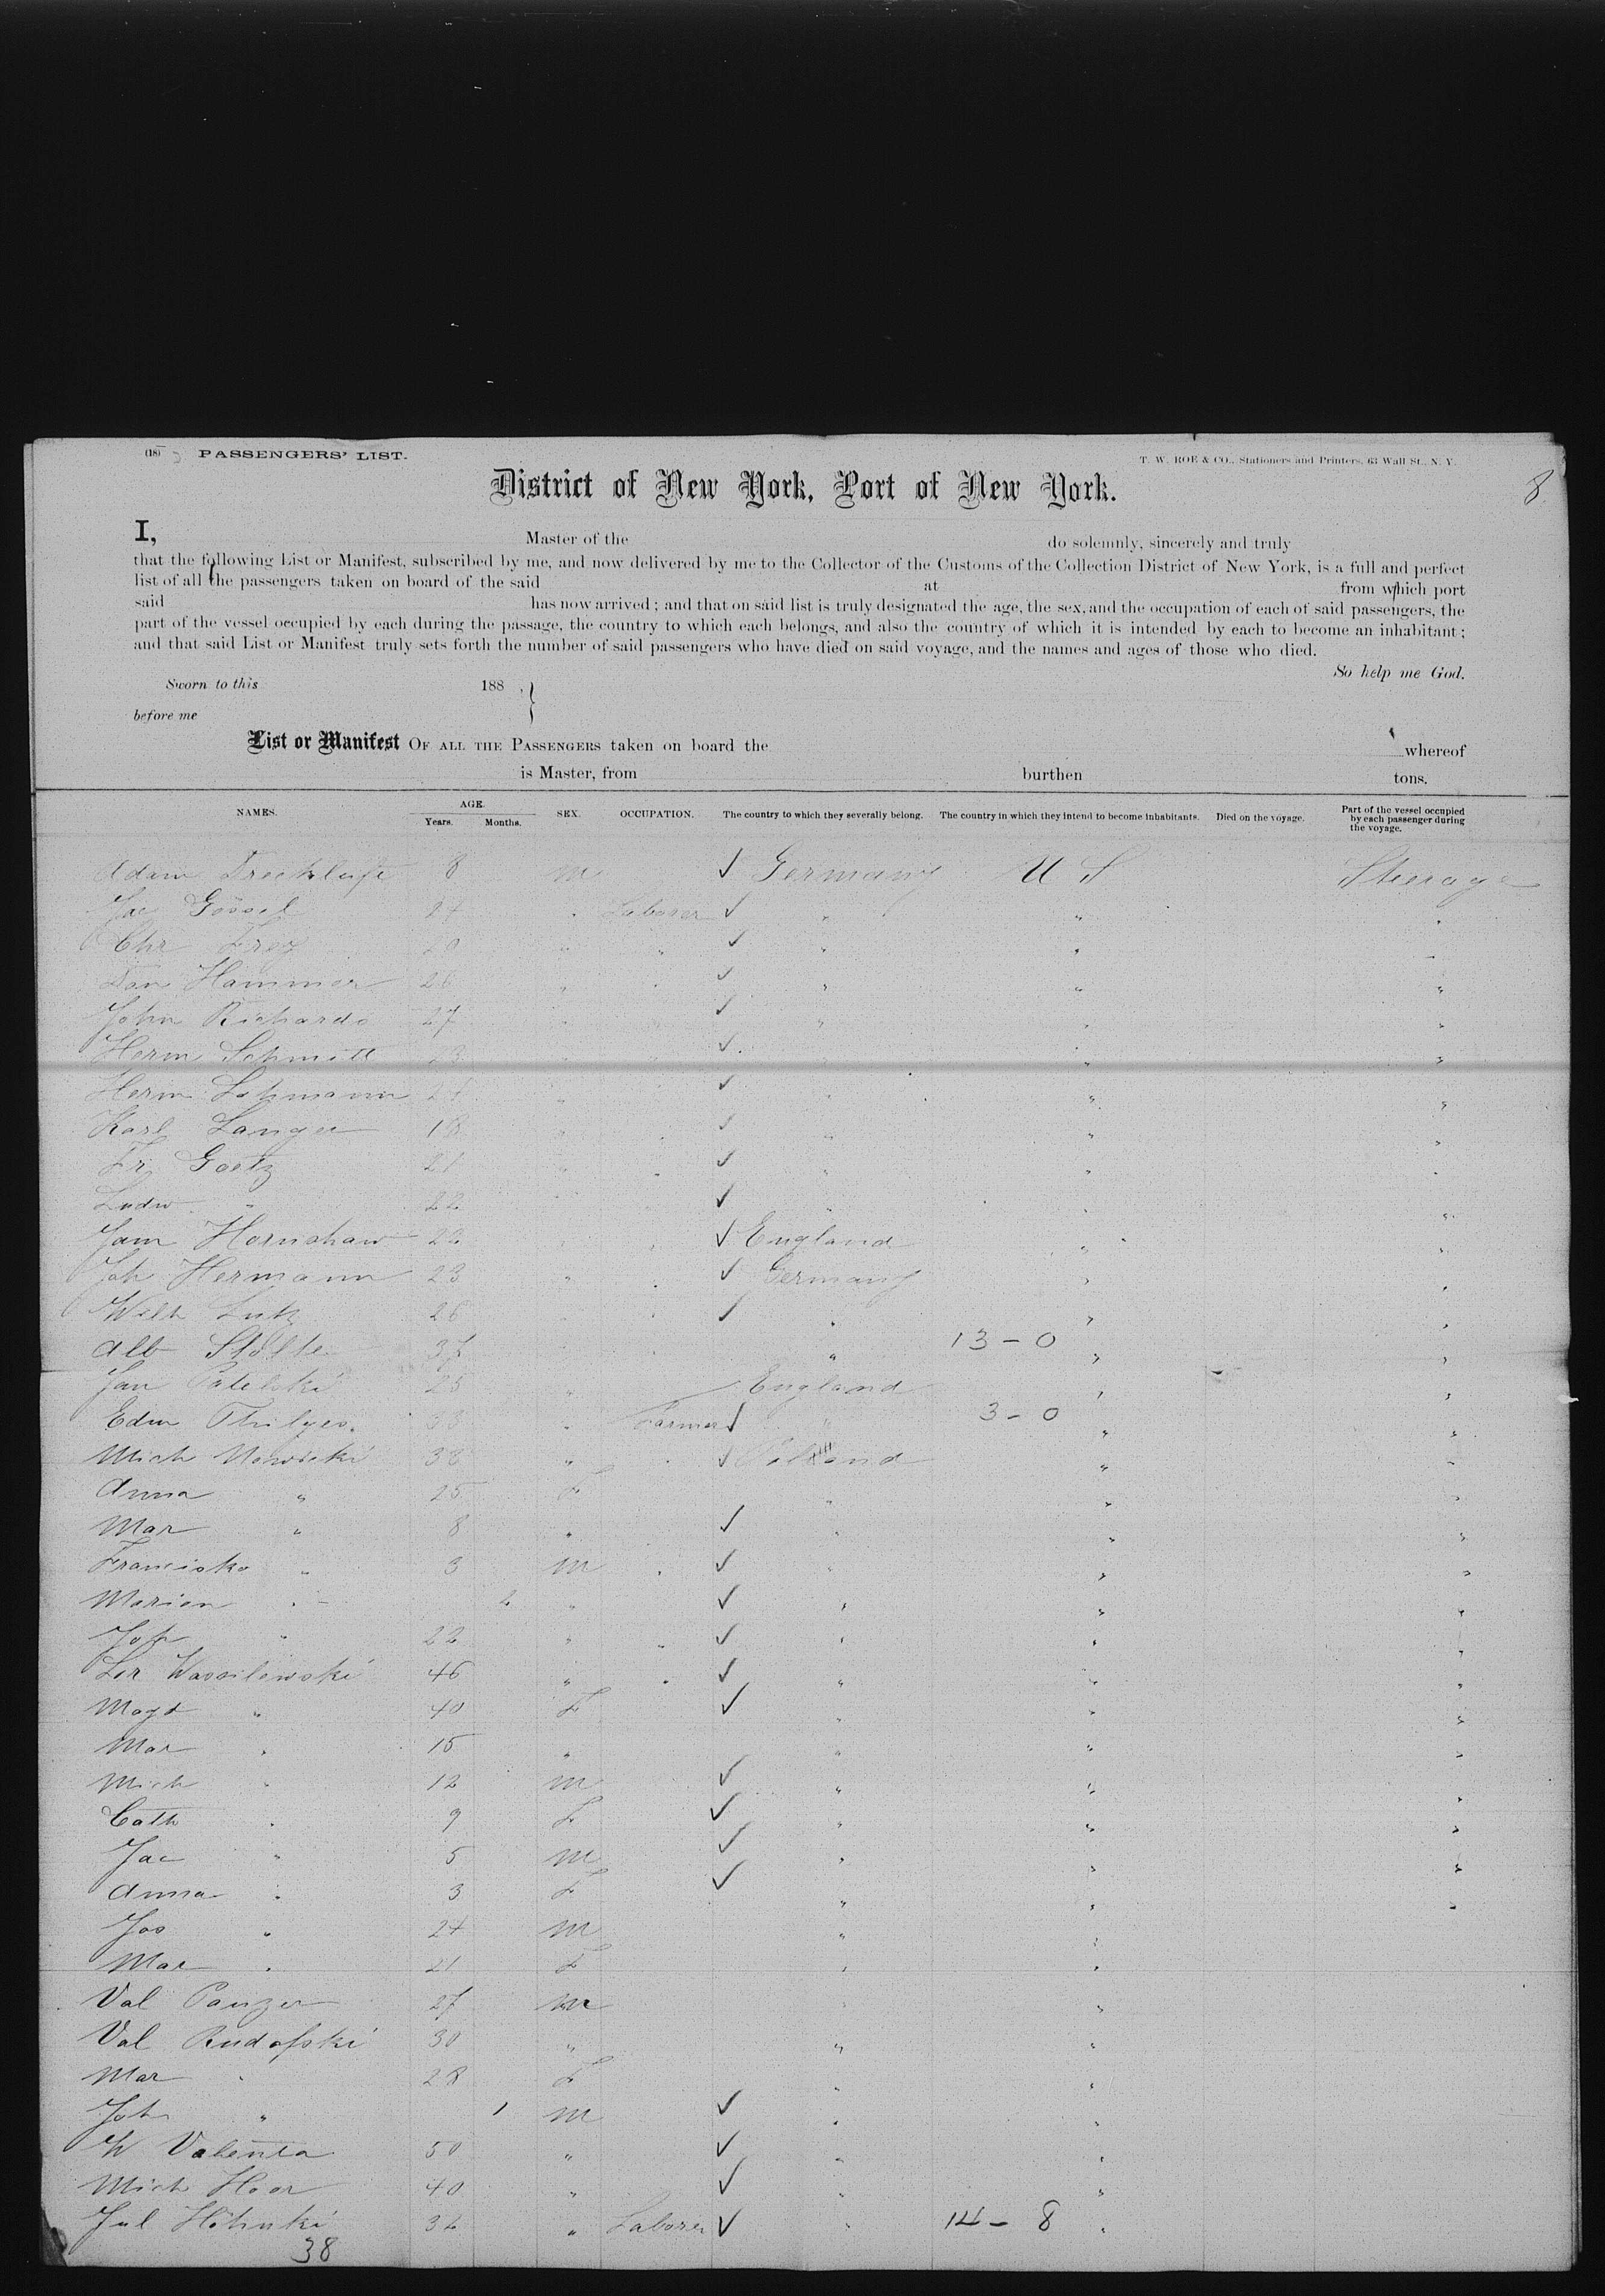 (18) PASSENGERS' LIST.
T. W. ROE & CO., Stationers and Printers, 63 Wall St., N. Y.
8
District of New York, Port of New York.
I, Master of the do solemnly, sincerely and truly
that the following List or Manifest, subscribed by me, and now delivered by me to the Collector of the Customs of the Collection District of New York, is a full and perfect
list of all the passengers taken on board of the said at from which port
said has now arrived; and that on said list is truly designated the age, the sex, and the occupation of each of said passengers, the
part of the vessel occupied by each during the passage, the country to which each belongs, and also the country of which it is intended by each to become an inhabitant;
and that said List or Manifest truly sets forth the number of said passengers who have died on said voyage, and the names and ages of those who died.
So help me God.
Sworn to this 188 , }
before me
List or Manifest OF ALL THE PASSENGERS taken on board the whereof
is Master, from burthen tons.
NAMES. AGE. Years. Months. SEX. OCCUPATION. The country to which they severally belong. The country in which they intend to become inhabitants. Died on the voyage. Part of the vessel occupied by each passenger during the voyage.
Adam 8 m ✓ Germany U S Steerage
Jac Gössel 24 " Laborer ✓ " " "
Chr Frey 20 " " ✓ " " "
Dan Hammer 26 " " ✓ " " "
John Richards 27 " " ✓ " " "
Herm Schmitt 23 " " ✓ " " "
Herm Lehmann " ✓ " " "
Karl Langer 18 " " ✓ " " "
Fr Goetz 21 " " ✓ " " "
Ludw " 22 ✓ " " "
Jam Hornshaw 22 " " ✓ England " "
Joh Hermann 23 " " ✓ Germany " "
Wilh Lutz 26 " " ✓ " " "
Alb Stolte 37 " 13 - 0 " "
Jan 25 " England " "
Edw 38 " Farmer ✓ " 3 - 0 " "
Mich Nowicki 38 " " ✓ Poland " "
Anna " 25 F " " "
Mar " 8 " ✓ " " "
Francisko " 3 m " ✓ " " "
Marian " 2 " ✓ " " "
Joh " 22 " " ✓ " " "
Lor Wassilewski 46 " " ✓ " " "
Magd " 40 F ✓ " " "
Mar " 15 " " " "
Mich " 12 m ✓ " " "
Cath " 9 F ✓ " " "
Jac " 5 m ✓ " " "
Anna " 3 F ✓ " " "
Jos " 24 m " "
Mar " 21 F " "
Val Panzer 27 m " "
Val Rudofski 30 " " "
Mar " 28 F " "
Joh " 1 m ✓ " "
W Valenta 50 " ✓ " "
Mich Hoor 40 " ✓ " "
Jul Hohnki 32 " Laborer ✓ " 14 - 8 "
38